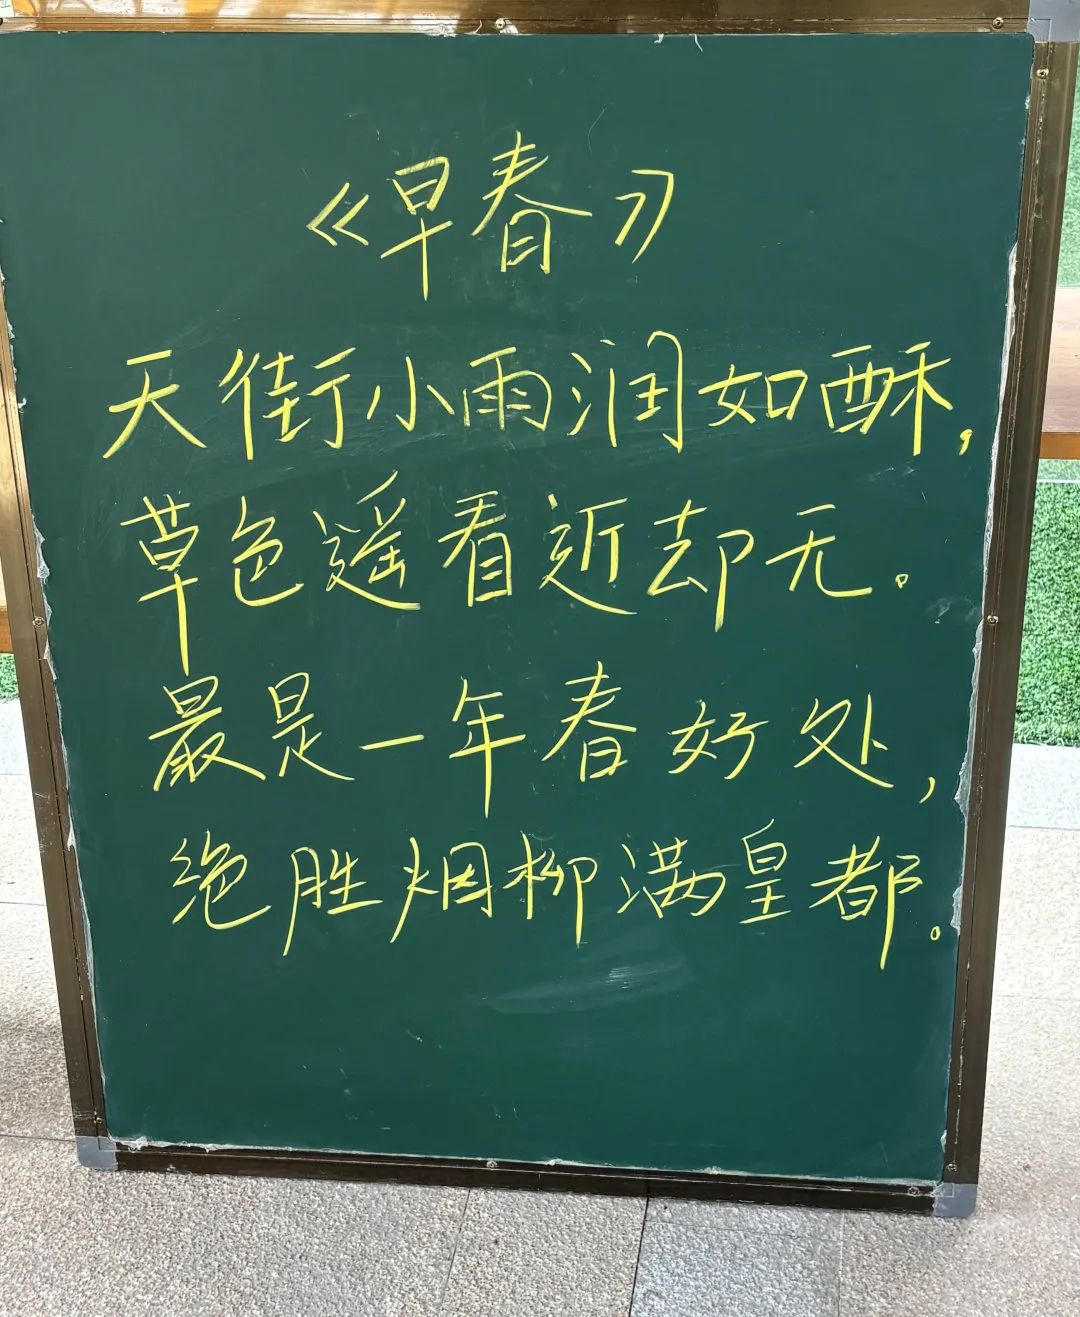 《早春》
天街小雨润如酥，
草色遥看近却无。
最是一年春好处，
绝胜烟柳满皇都。